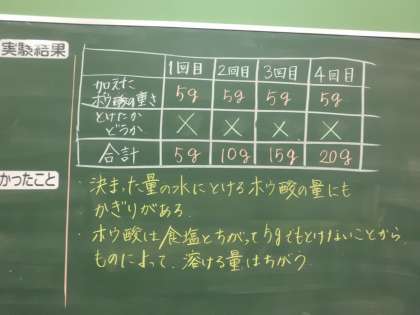 実験結果
1回目 2回目 3回目 4回目
加えた
ホウ酸の重さ 5g 5g 5g 5g
とけたか
どうか × × × ×
合計 5g 10g 15g 20g
かったこと
・決まった量の水にとけるホウ酸の量にも
かぎりがある.
・ホウ酸は食塩とちがって5gでもとけないことから、
ものによって、溶ける量はちがう.